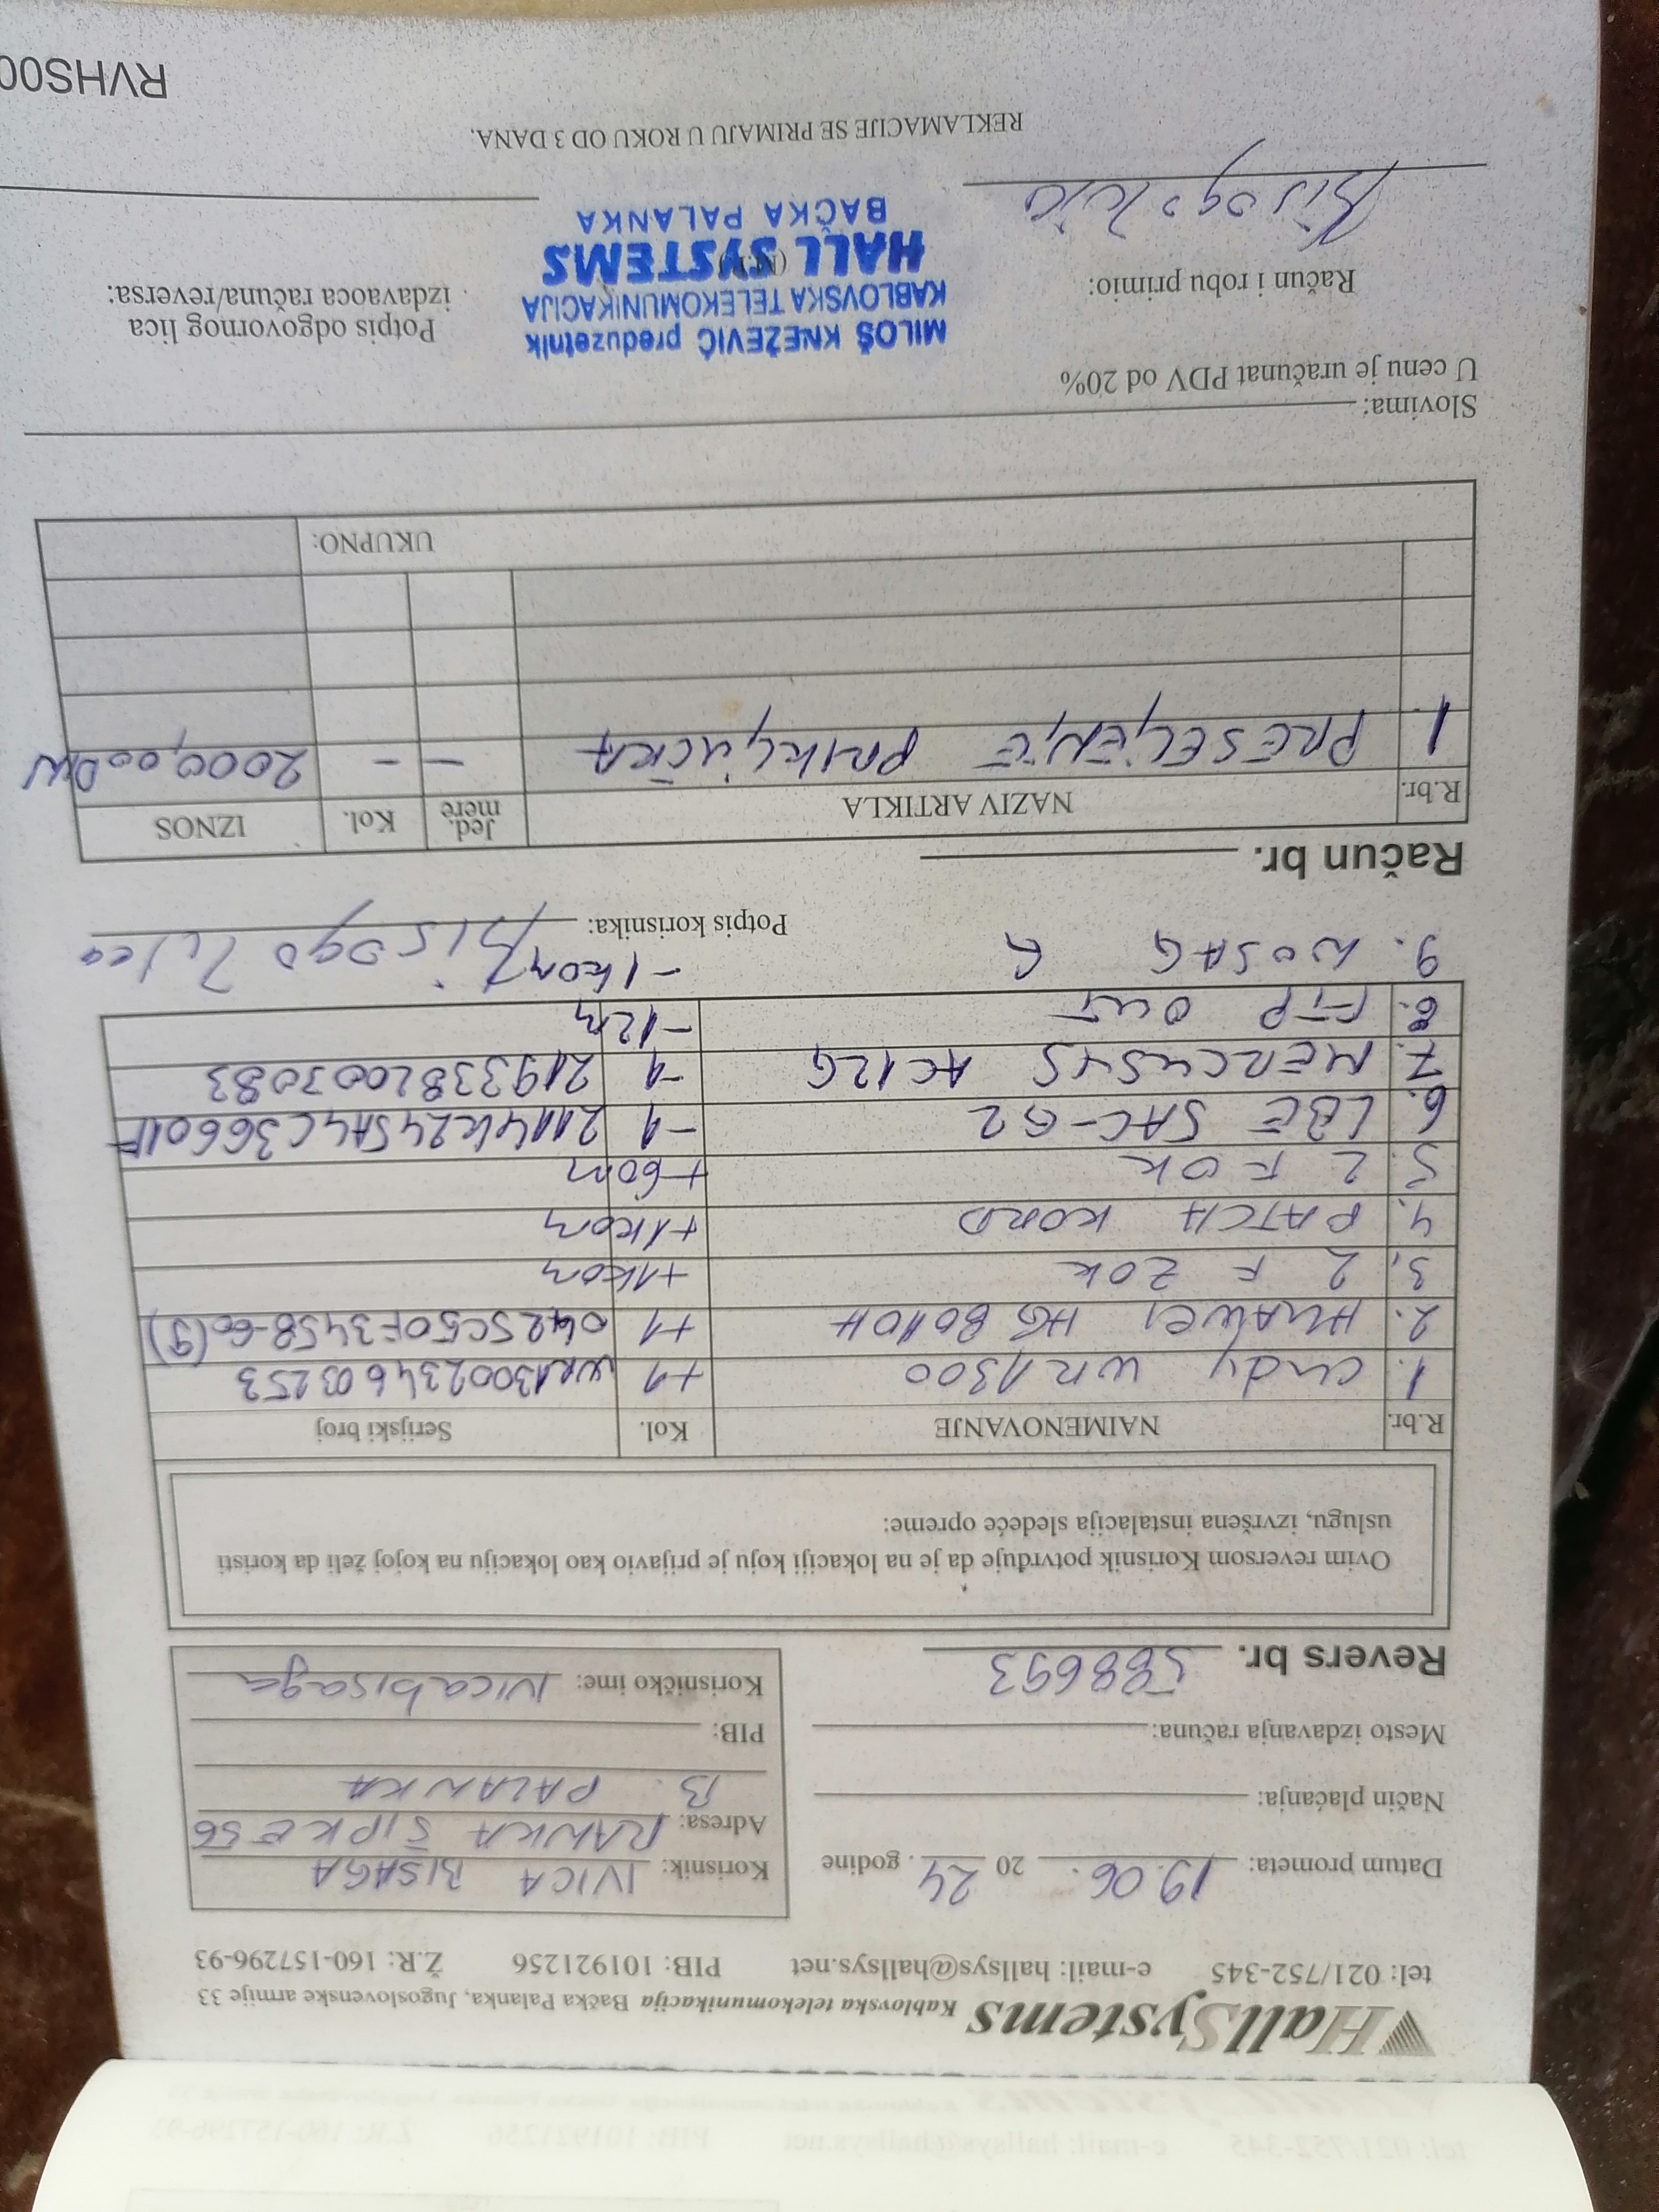 HallSystems Kablovska telekomunikacija Bačka Palanka, Jugoslovenske armije 33
tel: 021/752-345 e-mail: hallsys@hallsys.net PIB: 101921256 Ž.R: 160-157296-93
Datum prometa: 19.06. 20 24. godine
Način plaćanja:
Mesto izdavanja računa:
Revers br. 588693
Korisnik: IVICA BISAGA
Adresa: RANKA ŠIPKE 56
B. PALANKA
PIB:
Korisničko ime: ivicabisaga
Ovim reversom Korisnik potvrđuje da je na lokaciji koju je prijavio kao lokaciju na kojoj želi da koristi
uslugu, izvršena instalacija sledeće opreme:
R.br. NAIMENOVANJE Kol. Serijski broj
1. cudy WR1300 +1 WR1300234603253
2. HUAWEI HG8010H +1 0425C50F3458-60(J)
3. 2 F ZOK +1kom
4. PATCH KORD +1kom
5. 2 F OK +60m
6. LBE 5AC-G2 -1 2114K245A4C36601F
7. MERCUSYS AC12G -1 2193382003083
8. FTP OUT -12m
9. NOSAČ -1kom
Potpis korisnika: Bisaga Ivica
Račun br.
R.br. NAZIV ARTIKLA Jed. mere Kol. IZNOS
1. PRESELJENJE PRIKLJUČKA - - 2000,00 DIN
UKUPNO:
Slovima:
U cenu je uračunat PDV od 20%
Račun i robu primio:
Bisaga Ivica
MILOŠ KNEŽEVIĆ preduzetnik
KABLOVSKA TELEKOMUNIKACIJA
HALL SYSTEMS
BAČKA PALANKA
Potpis odgovornog lica
izdavaoca računa/reversa:
REKLAMACIJE SE PRIMAJU U ROKU OD 3 DANA.
RVHS00